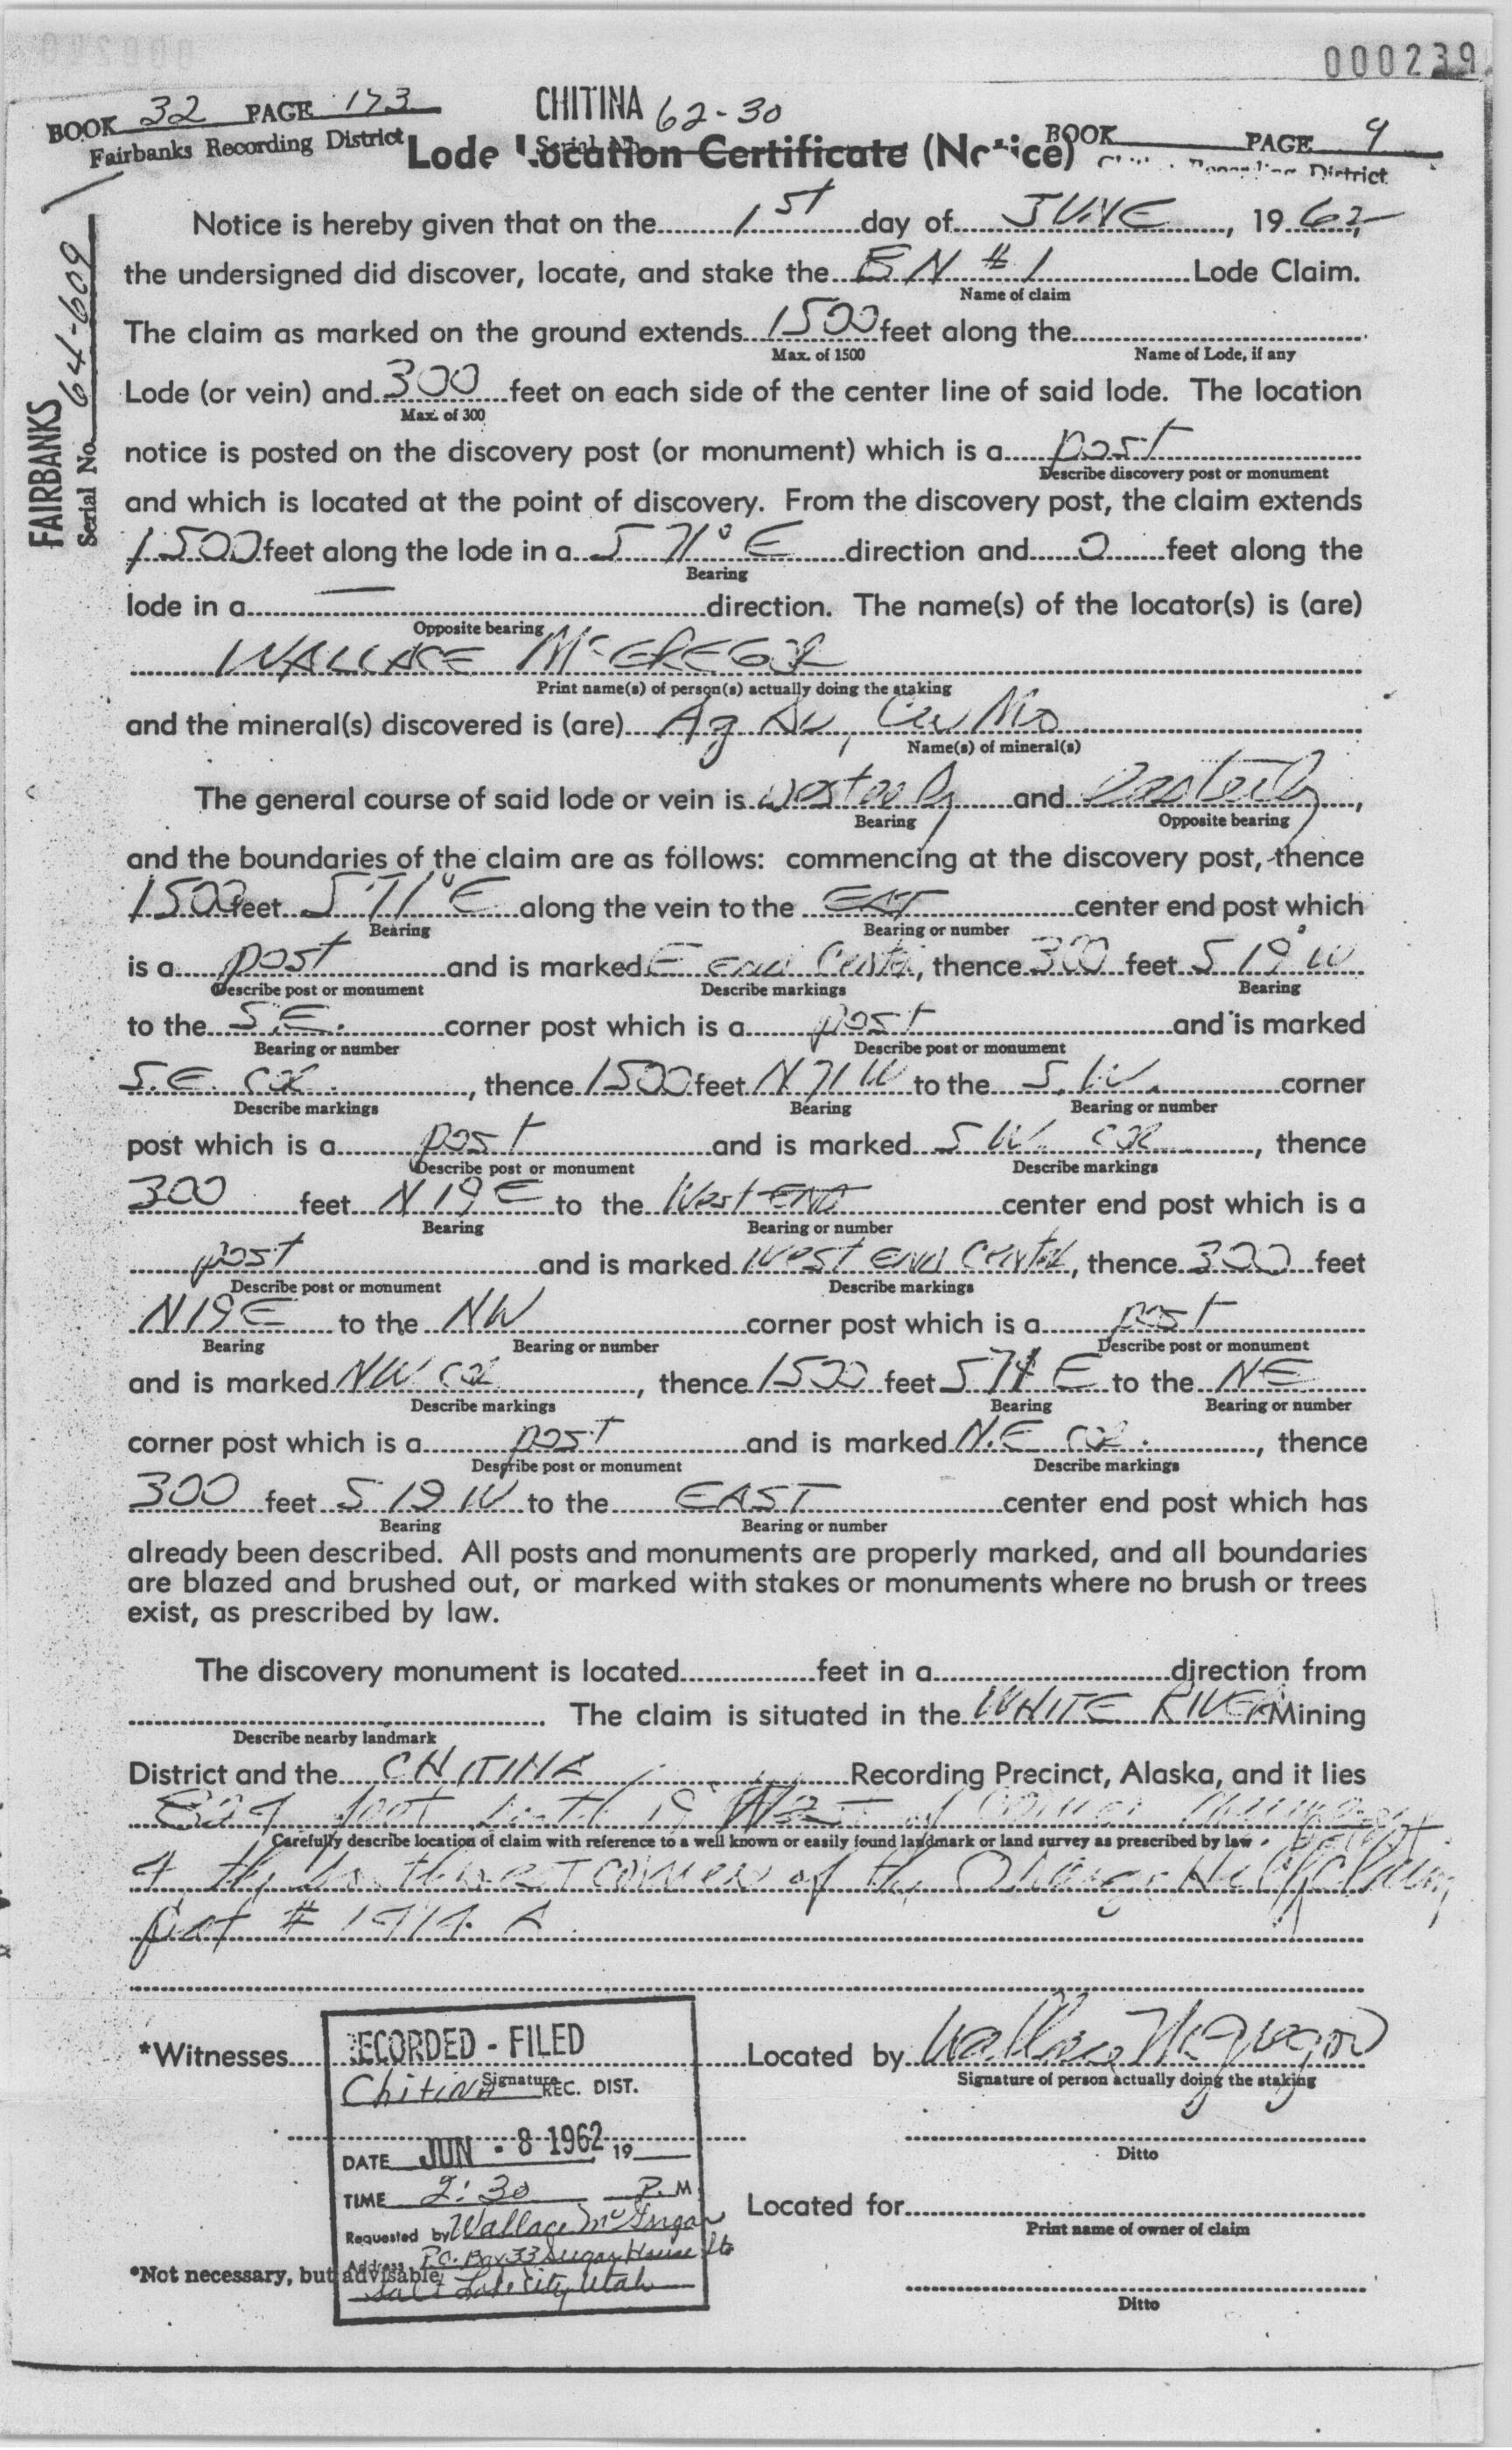 000239
BOOK 32 PAGE 173
Fairbanks Recording District
CHITINA 62-30
Serial No.
BOOK PAGE 9
District
Lode Location Certificate (Notice)
FAIRBANKS
Serial No. 64-609
Notice is hereby given that on the 1st day of JUNE, 1962,
the undersigned did discover, locate, and stake the EN #1 Lode Claim.
Name of claim
The claim as marked on the ground extends 1500 feet along the
Max. of 1500 Name of Lode, if any
Lode (or vein) and 300 feet on each side of the center line of said lode. The location
Max. of 300
notice is posted on the discovery post (or monument) which is a post
Describe discovery post or monument
and which is located at the point of discovery. From the discovery post, the claim extends
1500 feet along the lode in a S 71° E direction and 0 feet along the
Bearing
lode in a — direction. The name(s) of the locator(s) is (are)
Opposite bearing
WALLACE McGREGOR
Print name(s) of person(s) actually doing the staking
and the mineral(s) discovered is (are) Ag Au, Cu Mo
Name(s) of mineral(s)
The general course of said lode or vein is westerly and easterly,
Bearing Opposite bearing
and the boundaries of the claim are as follows: commencing at the discovery post, thence
1500 feet S 71° E along the vein to the EAST center end post which
Bearing Bearing or number
is a post and is marked E end Center, thence 300 feet S 19° W
Describe post or monument Describe markings Bearing
to the S.E. corner post which is a post and is marked
Bearing or number Describe post or monument
S.E. COR., thence 1500 feet N 71 W to the S.W. corner
Describe markings Bearing Bearing or number
post which is a post and is marked SW. COR, thence
Describe post or monument Describe markings
300 feet N 19 E to the West END center end post which is a
Bearing Bearing or number
post and is marked West end Center, thence 300 feet
Describe post or monument Describe markings
N 19 E to the NW corner post which is a post
Bearing Bearing or number Describe post or monument
and is marked NW COR, thence 1500 feet S 71 E to the NE
Describe markings Bearing Bearing or number
corner post which is a post and is marked N.E COR., thence
Describe post or monument Describe markings
300 feet S 19 W to the EAST center end post which has
Bearing Bearing or number
already been described. All posts and monuments are properly marked, and all boundaries
are blazed and brushed out, or marked with stakes or monuments where no brush or trees
exist, as prescribed by law.
The discovery monument is located feet in a direction from
The claim is situated in the WHITE RIVER Mining
Describe nearby landmark
District and the CHITINA Recording Precinct, Alaska, and it lies
foot 19 of corner
Carefully describe location of claim with reference to a well known or easily found landmark or land survey as prescribed by law
corner of the Orange Hill Claim
#
*Witnesses Located by Wallace McGregor
Signature Signature of person actually doing the staking
Ditto
Located for
Print name of owner of claim
Ditto
*Not necessary, but advisable
RECORDED - FILED
Chitina REC. DIST.
DATE JUN - 8 1962 19
TIME 2:30 P.M
Requested by Wallace McGregor
Address P.O. Box 33 Sugar House Sta
Salt Lake City Utah